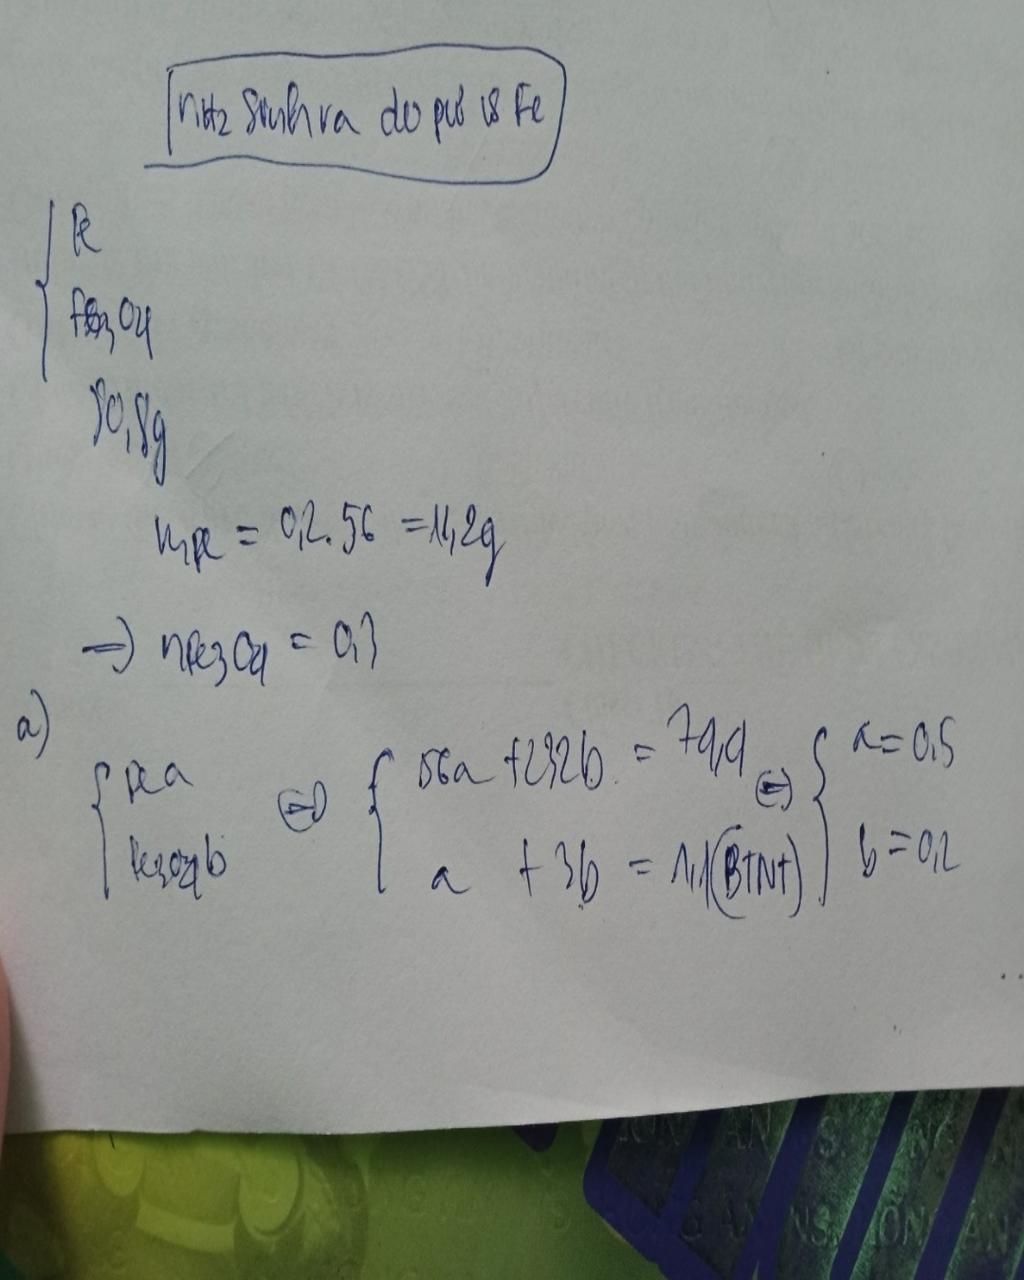 nH2 sinh ra do pứ vs Fe
Fe
Fe3O4
80,8g
mFe = 0,2.56 = 11,2g
=> nFe3O4 = 0,3
a)
Fe a
Fe3O4 b
<=>
56a + 232b = 74,4
a + 3b = 1,1 (BTNT)
<=>
a = 0,5
b = 0,2